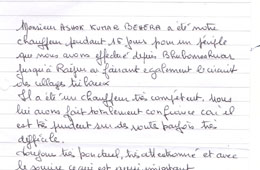 Monsieur ASHOK KUMAR BEHERA a été notre
chauffeur pendant 15 jours pour un périple
que nous avons effectué depuis Bhubaneshwar
jusqu'à Raipur en faisant également le circuit
des villages tribaux
Il a été un chauffeur très compétent, nous
lui avons fait totalement confiance car il
est très prudent sur des routes parfois très
difficile.
Toujours très ponctuel, très attentionné et avec
le sourire ce qui est aussi important